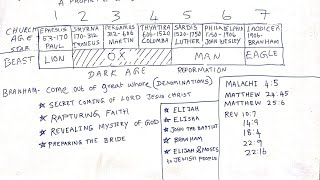 A PROPHETIC
1 2 3 4 5 6 7
CHURCH AGE EPHESUS SMYRNA PERGAMUS THYATIRA SARDIS PHILADELPHIA LAODICEA
53-170 170-312 312-606 606-1520 1520-1750 1750-1906 1906-
STAR PAUL IRENAEUS MARTIN COLUMBA LUTHER JOHN WESLEY BRANHAM
BEAST LION OX MAN EAGLE
DARK AGE REFORMATION
BRANHAM- Come out of great whore (DENOMINATIONS)
★ SECRET COMING OF LORD JESUS CHRIST
★ RAPTURING FAITH
★ REVEALING MYSTERY OF GOD
★ PREPARING THE BRIDE
★ ELIJAH
★ ELISHA
★ JOHN THE BAPTIST
★ BRANHAM
★ ELIJAH & MOSES
to JEWISH PEOPLE
MALACHI 4:5
MATTHEW 24:45
MATTHEW 25:6
REV 10:7
14:9
18:4
22:9
22:16